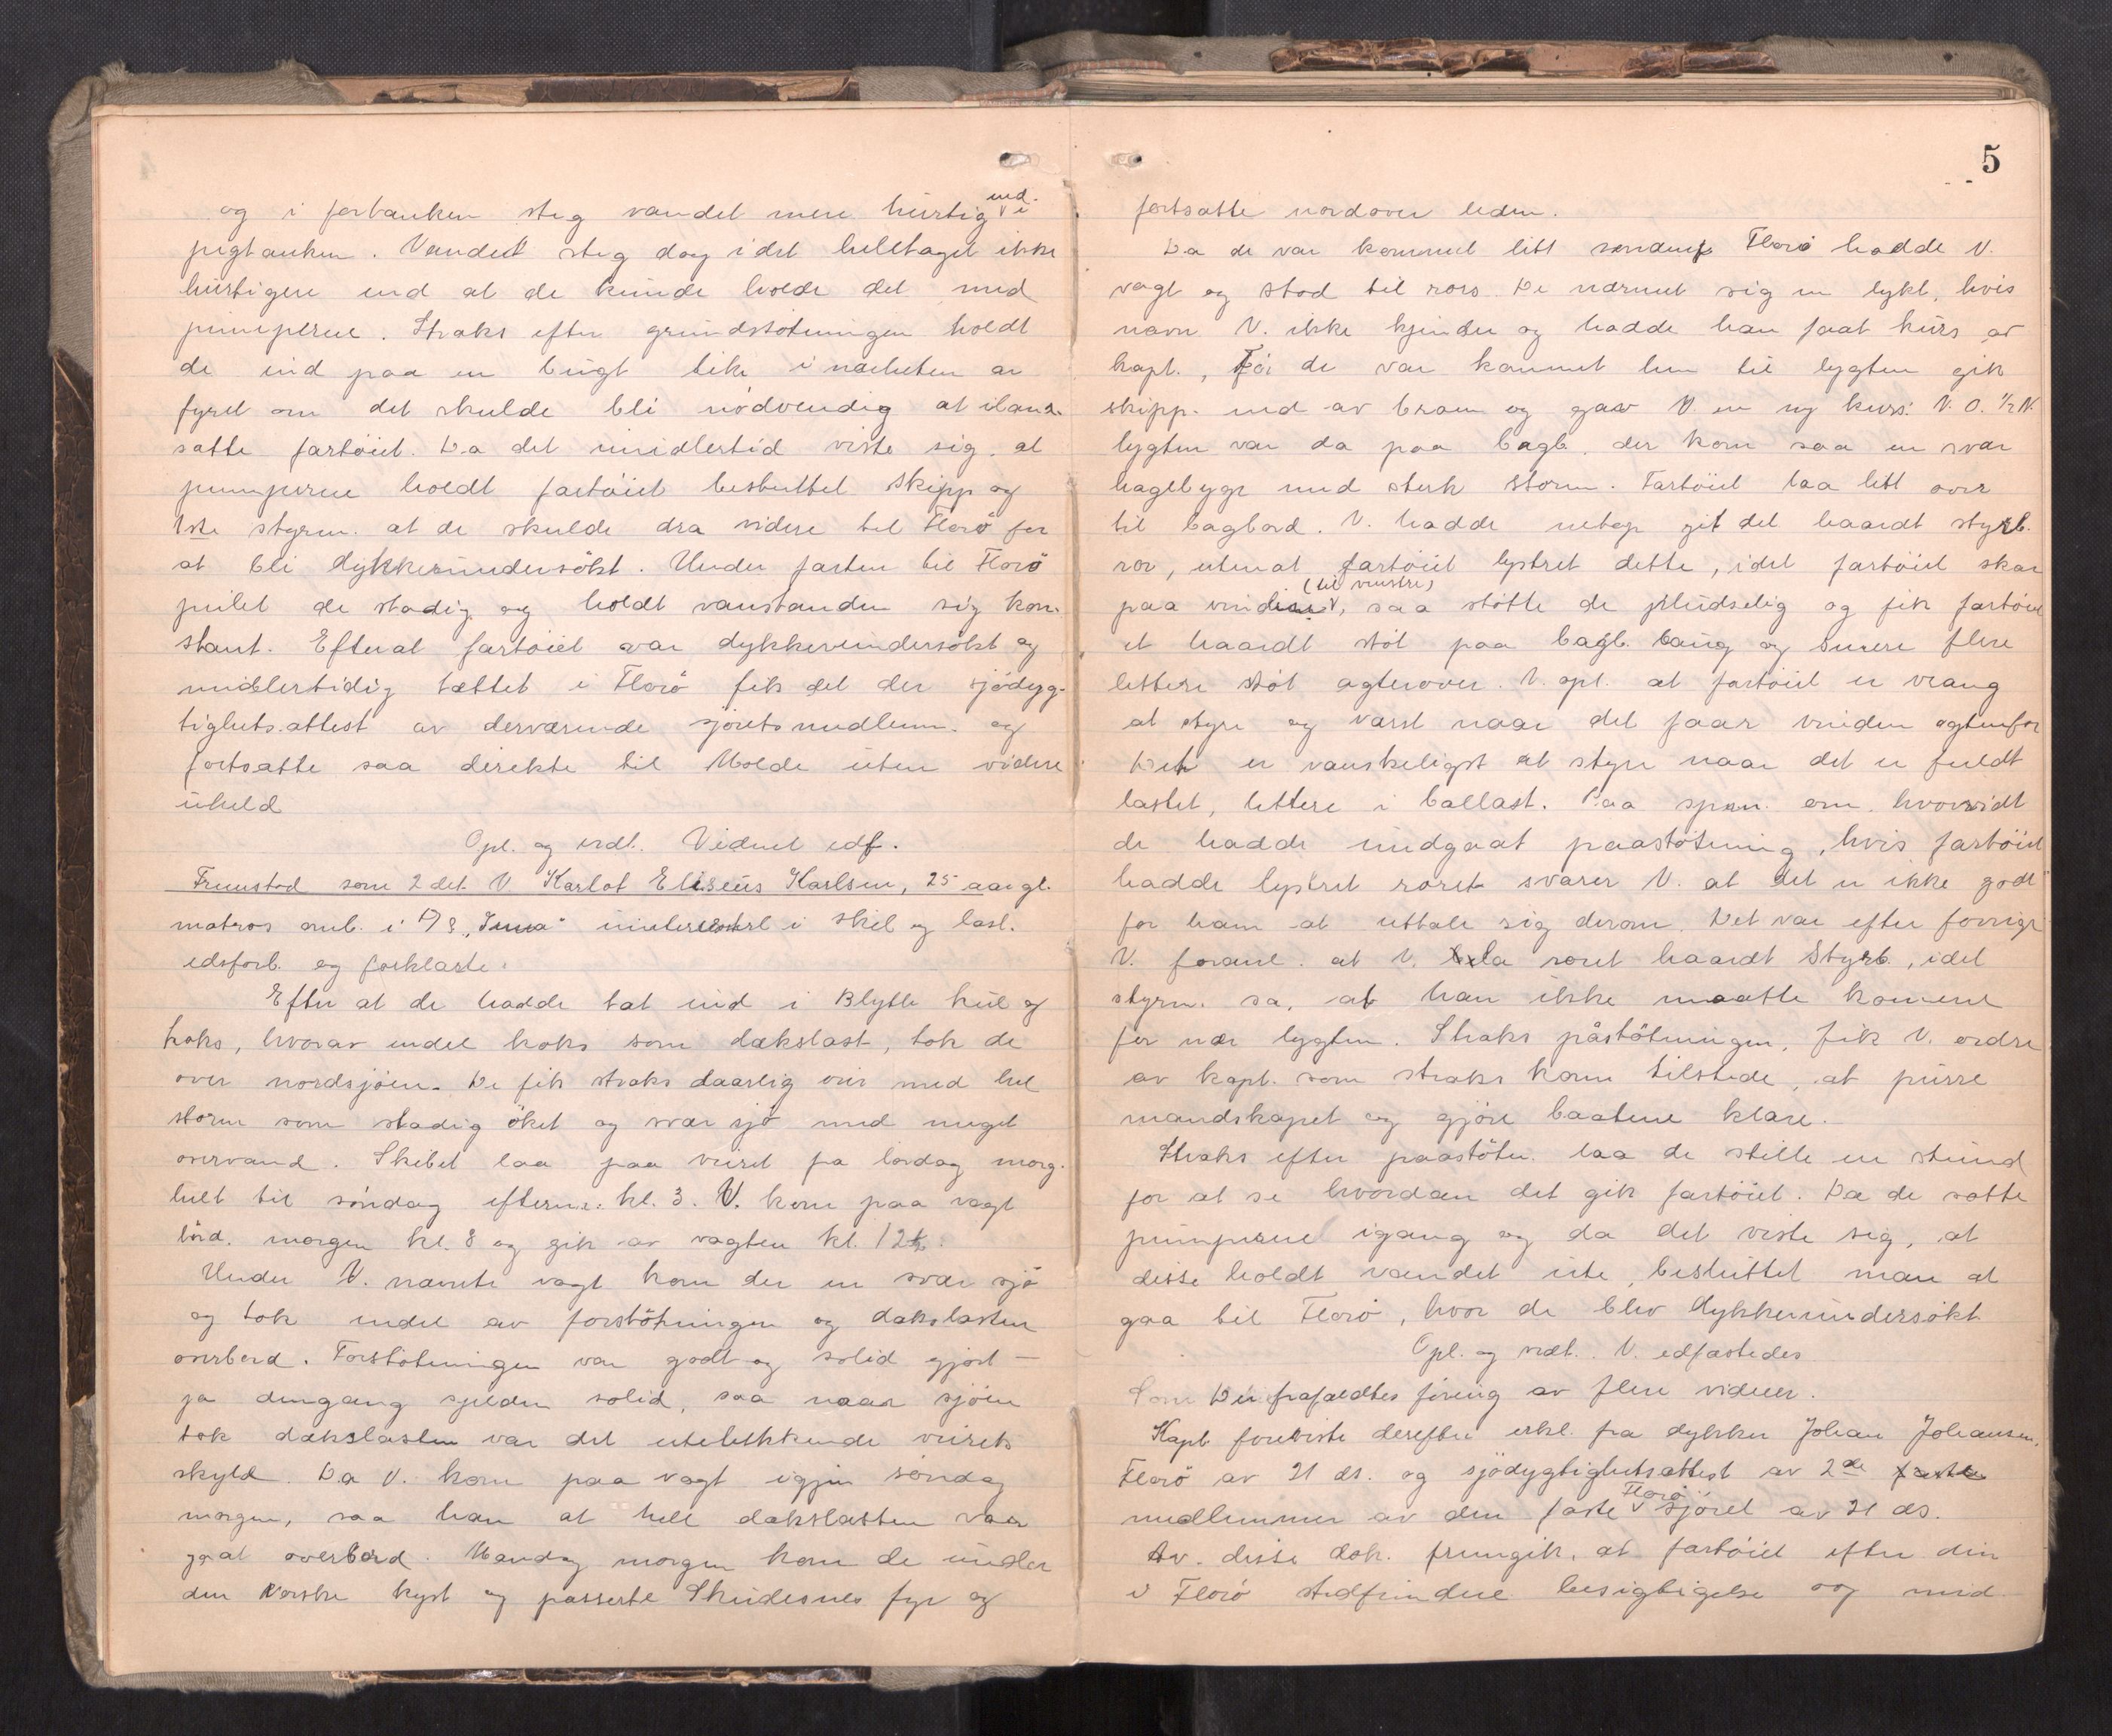 og i fortanken steg vandet mere hurtig end i
pigtanken. Vandet steg dog i det heletaget ikke
hurtigere end at de kunde holde det med
pumperne. Straks efter grundstötningen holdt
de ind paa en bugt like i nærheten av
fyret om det skulde bli nödvendig at iland-
sætte fartöiet. Da det imidlertid viste sig, at
pumperne holdt fartöiet besluttet skipp og
1ste styrm. at de skulde dra videre til Florö for
at bli dykkerundersökt. Under farten til Florö
peilet de stadig og holdt vanstanden sig kon-
stant. Efterat fartöiet var dykkerundersökt og
midlertidig tættet i Florö fik det der sjödyg-
tighets.attest av derværende sjörets medlem. og
fortsatte saa direkte til Molde uten videre
uheld
Opl. og vedt. Vidnet edf.
Fremstod som 2 det V. Karlot Eliseus Karlsen, 25 aar gl.
matros omb. i D/S "Juna" uinteressert i skib og last.
edsforb. og forklarte:
Efter at de hadde tat ind i Blythe kul og
koks, hvorav endel koks som dækslast, tok de
over nordsjöen. De fik straks daarlig veir med hel
storm som stadig öket og svær sjö med meget
overvand. Skibet laa paa veiret fra lördag morg.
helt til söndag efterm. kl. 3. V. kom paa vagt
lörd. morgen kl. 8 og gik av vagten kl. 12.
Under V. nævnte vagt kom der en svær sjö
og tok endel av forstötningen og dækslasten
overbord. Forstötningen var godt og solid gjort –
ja dengang sjelden solid, saa naar sjöen
tok dækslasten var det utelukkende veirets
skyld. Da V. kom paa vagt igjen söndag
morgen, saa han at hele dækslasten var
gaat overbord. Mandag morgen kom de under
den norske kyst og passerte Skudesnes fyr og
5
fortsatte nordover leden.
Da de var kommet litt söndenf Florö hadde V.
vagt og stod til rors. De nærmet sig en lykt, hvis
navn V. ikke kjender og hadde han faat kurs av
kapt., För de var kommet hen til lygten gik
skipp. ned av broen og gav V. en ny kurs: N. O. ½ N.
lygten var da paa bagb. der kom saa en svær
haglbyge med sterk storm. Fartöiet laa lett over
til bagbord. V. hadde netop git det haardt styrb.
ror, uten at fartöiet lystret dette, idet fartöiet skar
(til venstre)
paa vinden, saa stötte de pludselig og fik fartöiet
et haardt stöt paa bagb. baug og senere flere
lettere stöt agterover. V. opl. at fartöiet er vrang
at styre og værst naar det faar vinden agtenfor
Det er vanskeligst at styre naar det er fuldt
lastet, lettere i ballast. Paa spm. om hvorvidt
de hadde undgaat paastötning, hvis fartöiet
hadde lystret roret svarer V. at det er ikke godt
for ham at uttale sig derom. Det var efter forrige
V. foranl. at V. la roret haardt Styrb., idet
styrm. sa, at han ikke maatte komme
for nær lygten. Straks påstötningen, fik V. ordre
av kapt. som straks kom tilstede, at purre
mandskapet og gjöre baatene klare.
Straks efter paastötn. laa de stille en stund
for at se hvordan det gik fartöiet. Da de satte
pumperne igang og da det viste sig, at
disse holdt vandet ute, besluttet man at
gaa til Florö, hvor de blev dykkerundersökt.
Opl. og vedt. V. edfæstedes
Der frafaldtes föring av flere vidner.
Kapt foreviste derefter erkl. fra dykker Johan Johansen,
Florö av 21 ds. og sjödygtighetsattest av 2de
medlemmer av den faste Florö sjöret av 21 ds.
Av disse dok. fremgik, at fartöiet efter den
i Florö stedfundne besigtigelse og med